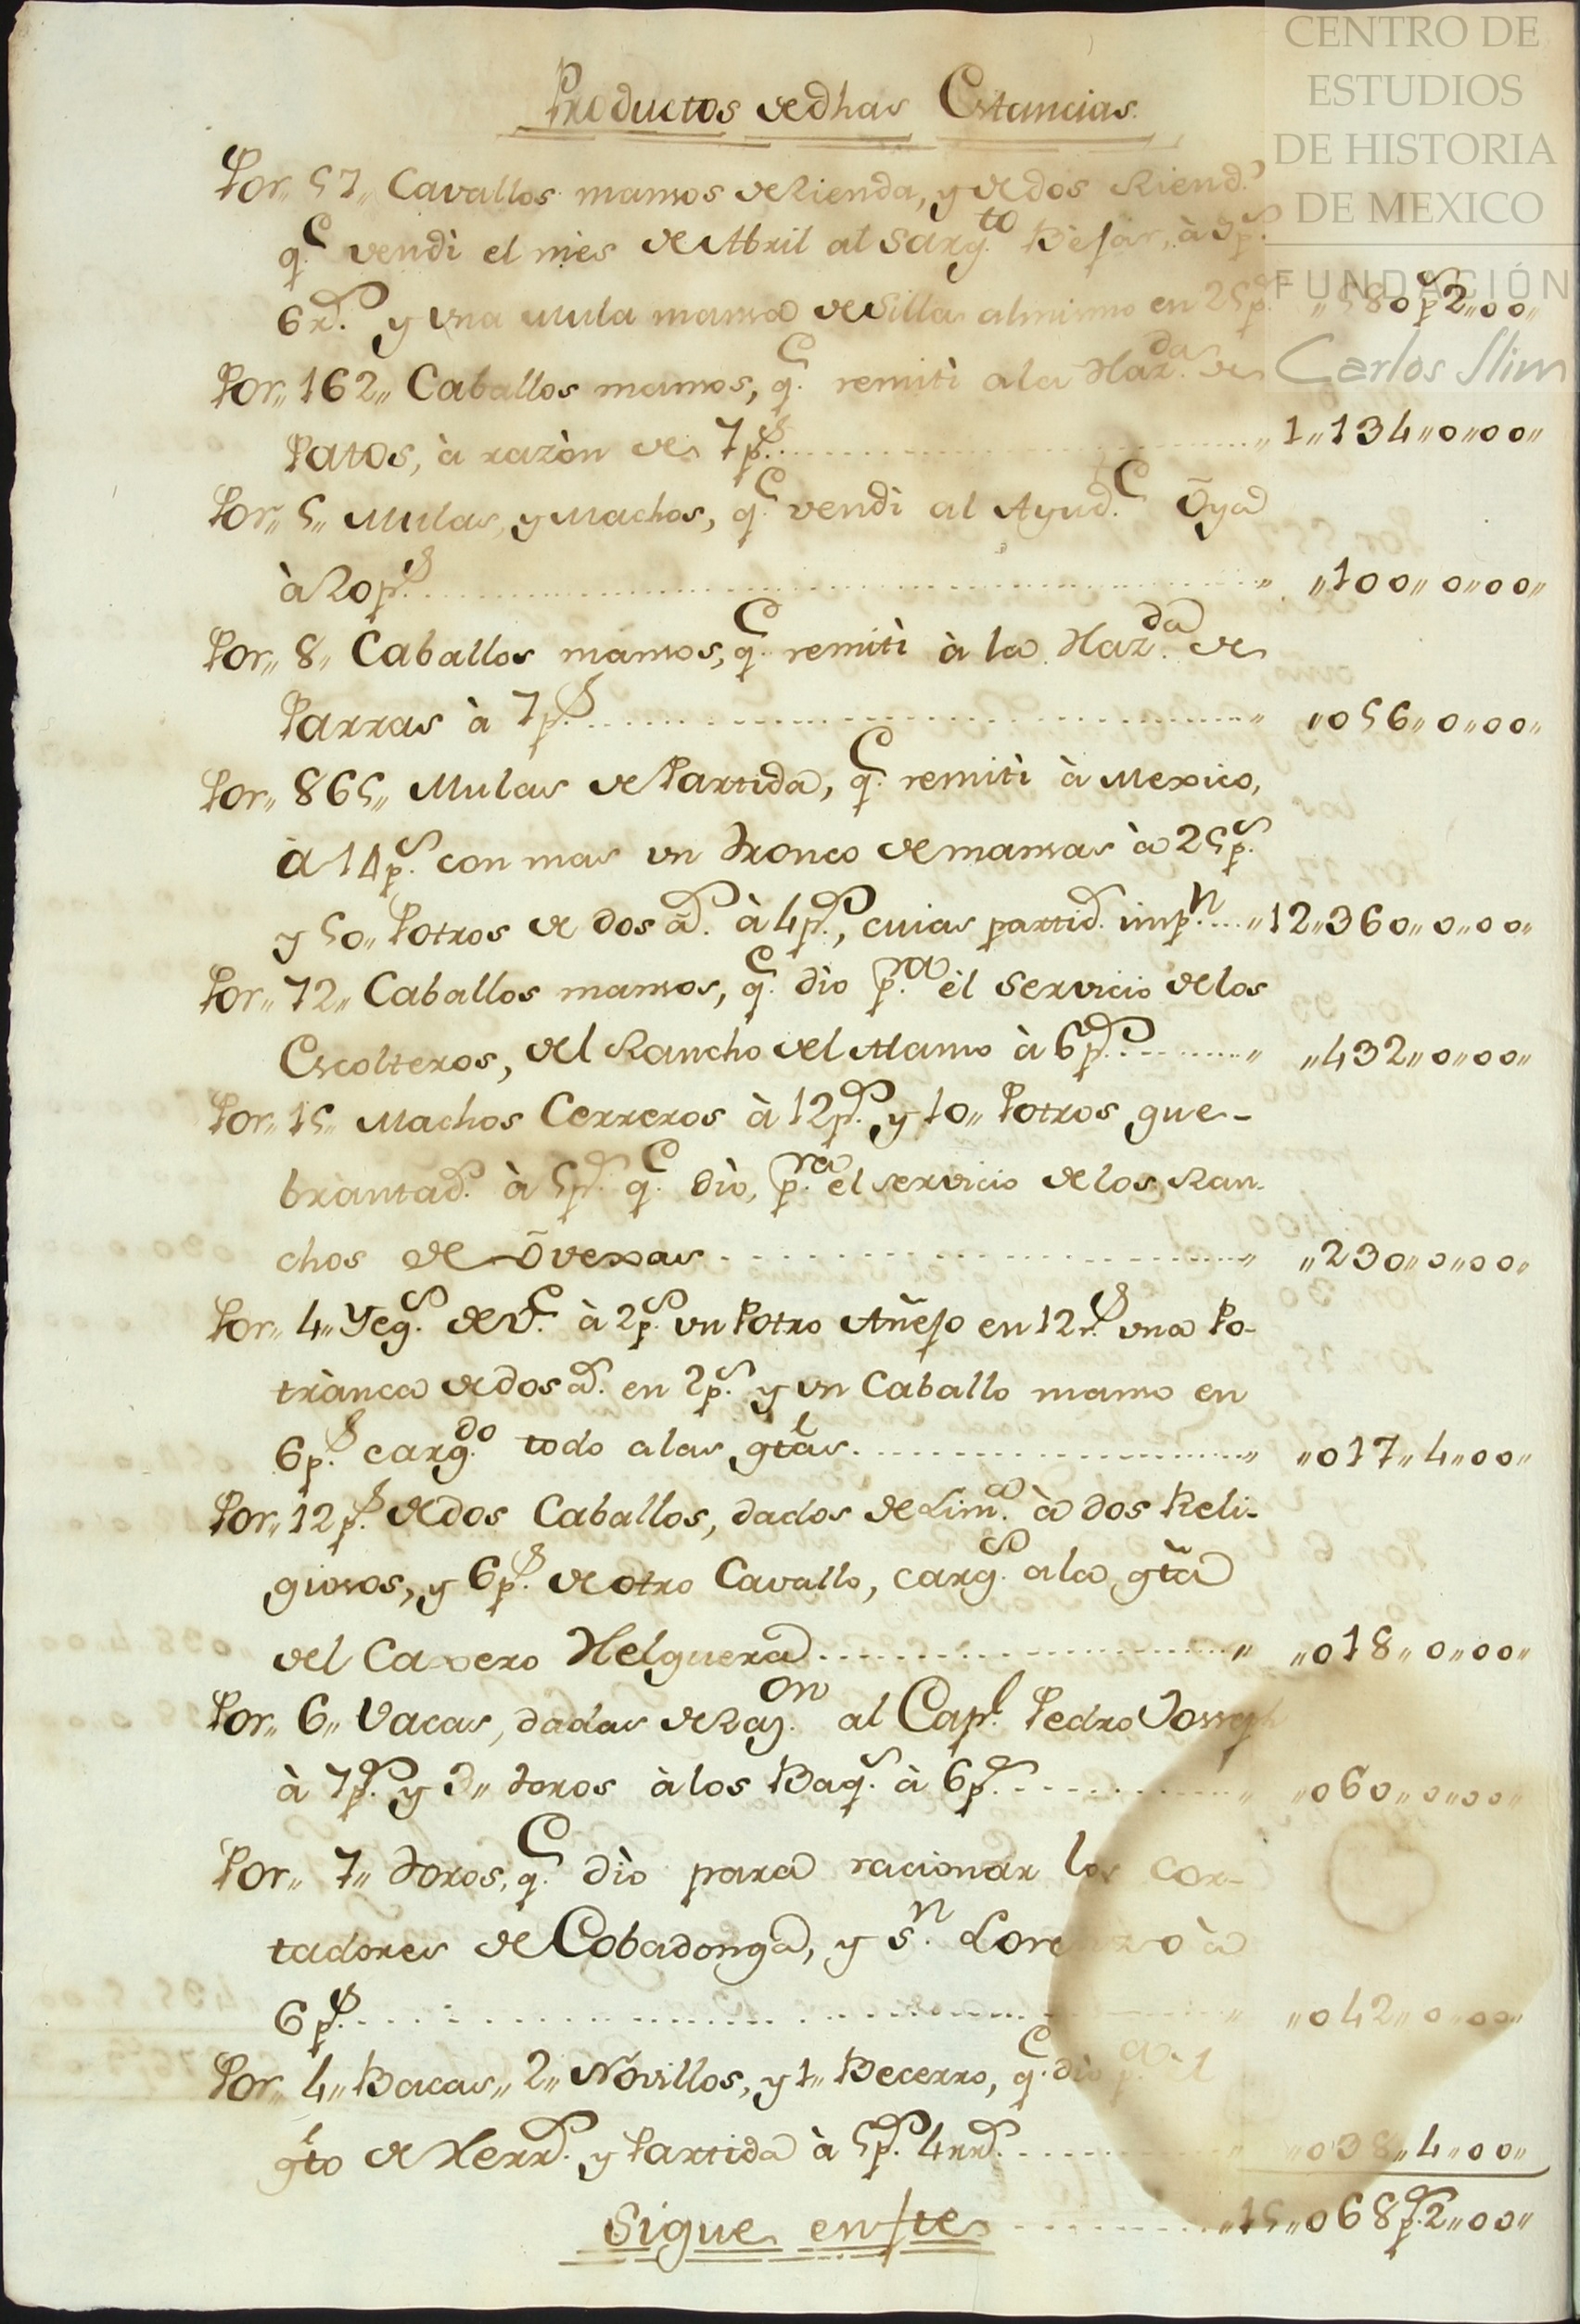 CENTRO DE
ESTUDIOS
DE HISTORIA
DE MEXICO
FUNDACIÓN
Carlos Slim
Productos de dhas Estancias.
Por,, 57,, Cavallos mansos de Rienda, y de dos Riend.s
q.e vendi el mes de Abril al Sarg.to Bejar, à 9p.s
6 r.s y una Mula mansa de Silla al mismo en 25p.s ,,580p.s2,,00,,
Por,, 162,, Caballos mansos, q.e remiti a la Haz.da de
Patos, à razòn de 7p.s ........ ,,1,,134,,0,,00,,
Por,, 5,, Mulas, y Machos, q.e vendi al Ayud.e Õya
à 20p.s ........ ,, ,,100,,0,,00,,
Por,, 8,, Caballos mansos, q.e remiti à la Haz.da de
Parras à 7p.s ........ ,, ,,056,,0,,00,,
Por,, 865,, Mulas de Partida, q.e remiti à Mexico,
à 14p.s con mas un Tronco de mansas à 25p.s
y 50,, Potros de dos a.s à 4p.s, cuias partid.s imp.n .... ,,12,,360,,0,,00,,
Por,, 72,, Caballos mansos, q.e dio p.ra èl Servicio de los
Escolteros, del Rancho del Alamo à 6p.s ........ ,, ,,432,,0,,00,,
Por,, 15,, Machos Cerreros à 12p.s y 10,, Potros que-
brantad.s à 5p.s q.e diò, p.ra el servicio de los Ran-
chos de Õvexas ........ ,, ,,230,,0,,00,,
Por,, 4,, Yeg.s de v.e à 2p.s un Potro Añejo en 12r.s una Po-
tranca de dos a.s en 2p.s y un Caballo manso en
6p.s carg.do todo a las gtãs. ........ ,, ,,017,,4,,00,,
Por,, 12p.s de dos Caballos, dados de Lim.a à dos Reli-
giosos, y 6p.s de otro Cavallo, carg.s a la gtã
del Caxero Helguera ........ ,, ,,018,,0,,00,,
Por,, 6,, Vacas, dadas de Raz.on al Cap.l Pedro Joseph
à 7p.s y 3,, Toros à los Baq.s à 6p.s ........ ,, ,,060,,0,,00,,
Por,, 7,, Toros, q.e diò para racionar los Cor-
tadores de Cobadonga, y S.n Lorenzo à
6p.s ........ ,, ,,042,,0,,00,,
Por,, 4,, Bacas,, 2,, Novillos, y 1,, Becerro, q.e dio p.a el
gto de Herr.s y Partida à 5p.s 4rr.s ........ ,, ,,038,,4,,00,,
Sigue enfte ........ ,,15,,068p.s2,,00,,